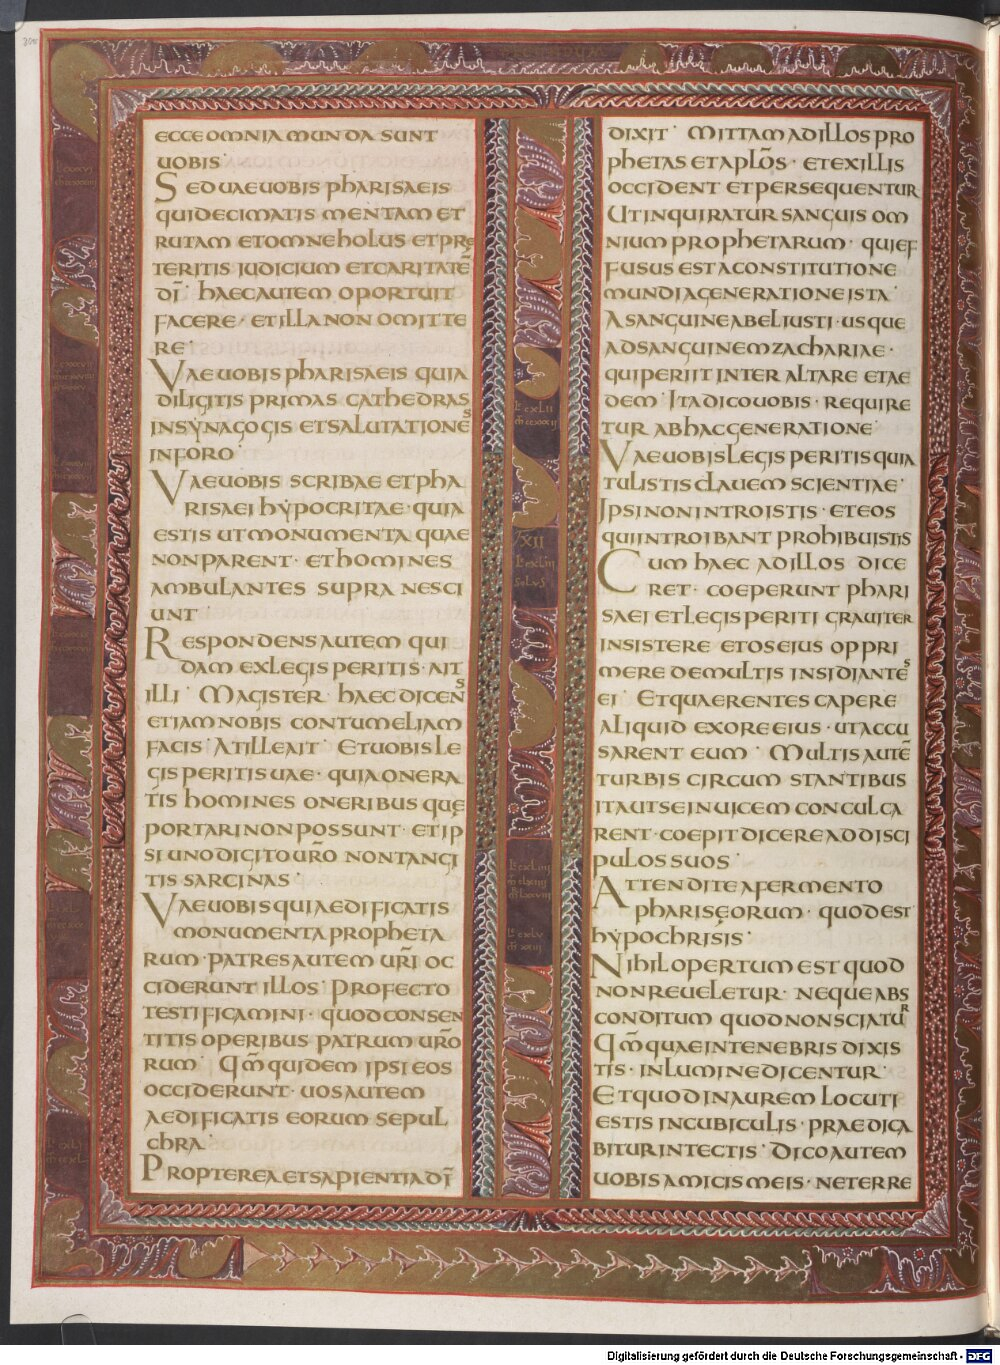 ECCE OMNIA MUNDA SUNT
UOBIS·
SED UAE UOBIS PHARISAEIS
QUI DECIMATIS MENTAM ET
RUTAM ET OMNE HOLUS ET PRE
TERITIS JUDICIUM ET CARITATĒ
DĪ· HAEC AUTEM OPORTUIT
FACERE· ET ILLA NON OMITTE
RE·
VAE UOBIS PHARISAEIS QUIA
DILIGITIS PRIMAS CATHEDRAS
IN SYNAGOGIS ET SALUTATIONES
IN FORO·
VAE UOBIS SCRIBAE ET PHA
RISAEI HYPOCRITAE· QUIA
ESTIS UT MONUMENTA QUAE
NON PARENT· ET HOMINES
AMBULANTES SUPRA NESCI
UNT·
RESPONDENS AUTEM QUI
DAM EX LEGIS PERITIS· AIT
ILLI· MAGISTER· HAEC DICENS
ETIAM NOBIS CONTUMELIAM
FACIS· AT ILLE AIT· ET UOBIS LE
GIS PERITIS UAE· QUIA ONERA
TIS HOMINES ONERIBUS QUĘ
PORTARI NON POSSUNT· ET IP
SI UNO DIGITO UR̄O NON TANGI
TIS SARCINAS·
VAE UOBIS QUI AEDIFICATIS
MONUMENTA PROPHETA
RUM· PATRES AUTEM UR̄I OC
CIDERUNT ILLOS· PROFECTO
TESTIFICAMINI· QUOD CONSEN
TITIS OPERIBUS PATRUM UR̄O
RUM· QM̄ QUIDEM IPSI EOS
OCCIDERUNT· UOS AUTEM
AEDIFICATIS EORUM SEPUL
CHRA
PROPTEREA ET SAPIENTIA DĪ
DIXIT· MITTAM AD ILLOS PRO
PHETAS ET APLŌS· ET EX ILLIS
OCCIDENT ET PERSEQUENTUR
UT INQUIRATUR SANGUIS OM
NIUM PROPHETARUM· QUI EF
FUSUS EST A CONSTITUTIONE
MUNDI A GENERATIONE ISTA·
A SANGUINE ABEL IUSTI· USQUE
AD SANGUINEM ZACHARIAE·
QUI PERIIT INTER ALTARE ET AE
DEM· ITA DICO UOBIS· REQUIRE
TUR AB HAC GENERATIONE·
VAE UOBIS LEGIS PERITIS QUIA
TULISTIS CLAUEM SCIENTIAE·
IPSI NON INTROISTIS· ET EOS
QUI INTROIBANT PROHIBUISTIS
CUM HAEC AD ILLOS DICE
RET· COEPERUNT PHARI
SAEI ET LEGIS PERITI GRAUITER
INSISTERE ET OS EIUS OPPRI
MERE DE MULTIS INSIDIANTES
EI· ET QUAERENTES CAPERE
ALIQUID EX ORE EIUS· UT ACCU
SARENT EUM· MULTIS AUTĒ
TURBIS CIRCUM STANTIBUS
ITA UT SE INUICEM CONCULCA
RENT· COEPIT DICERE AD DISCI
PULOS SUOS·
ATTENDITE A FERMENTO
PHARISĘORUM· QUOD EST
HYPOCHRISIS·
NIHIL OPERTUM EST QUOD
NON REUELETUR· NEQUE ABS
CONDITUM QUOD NON SCIATUR
QM̄ QUAE IN TENEBRIS DIXIS
TIS· IN LUMINE DICENTUR·
ET QUOD IN AUREM LOCUTI
ESTIS IN CUBICULIS· PRAEDICA
BITUR IN TECTIS· DICO AUTEM
UOBIS AMICIS MEIS· NE TERRE
Digitalisierung gefördert durch die Deutsche Forschungsgemeinschaft - DFG